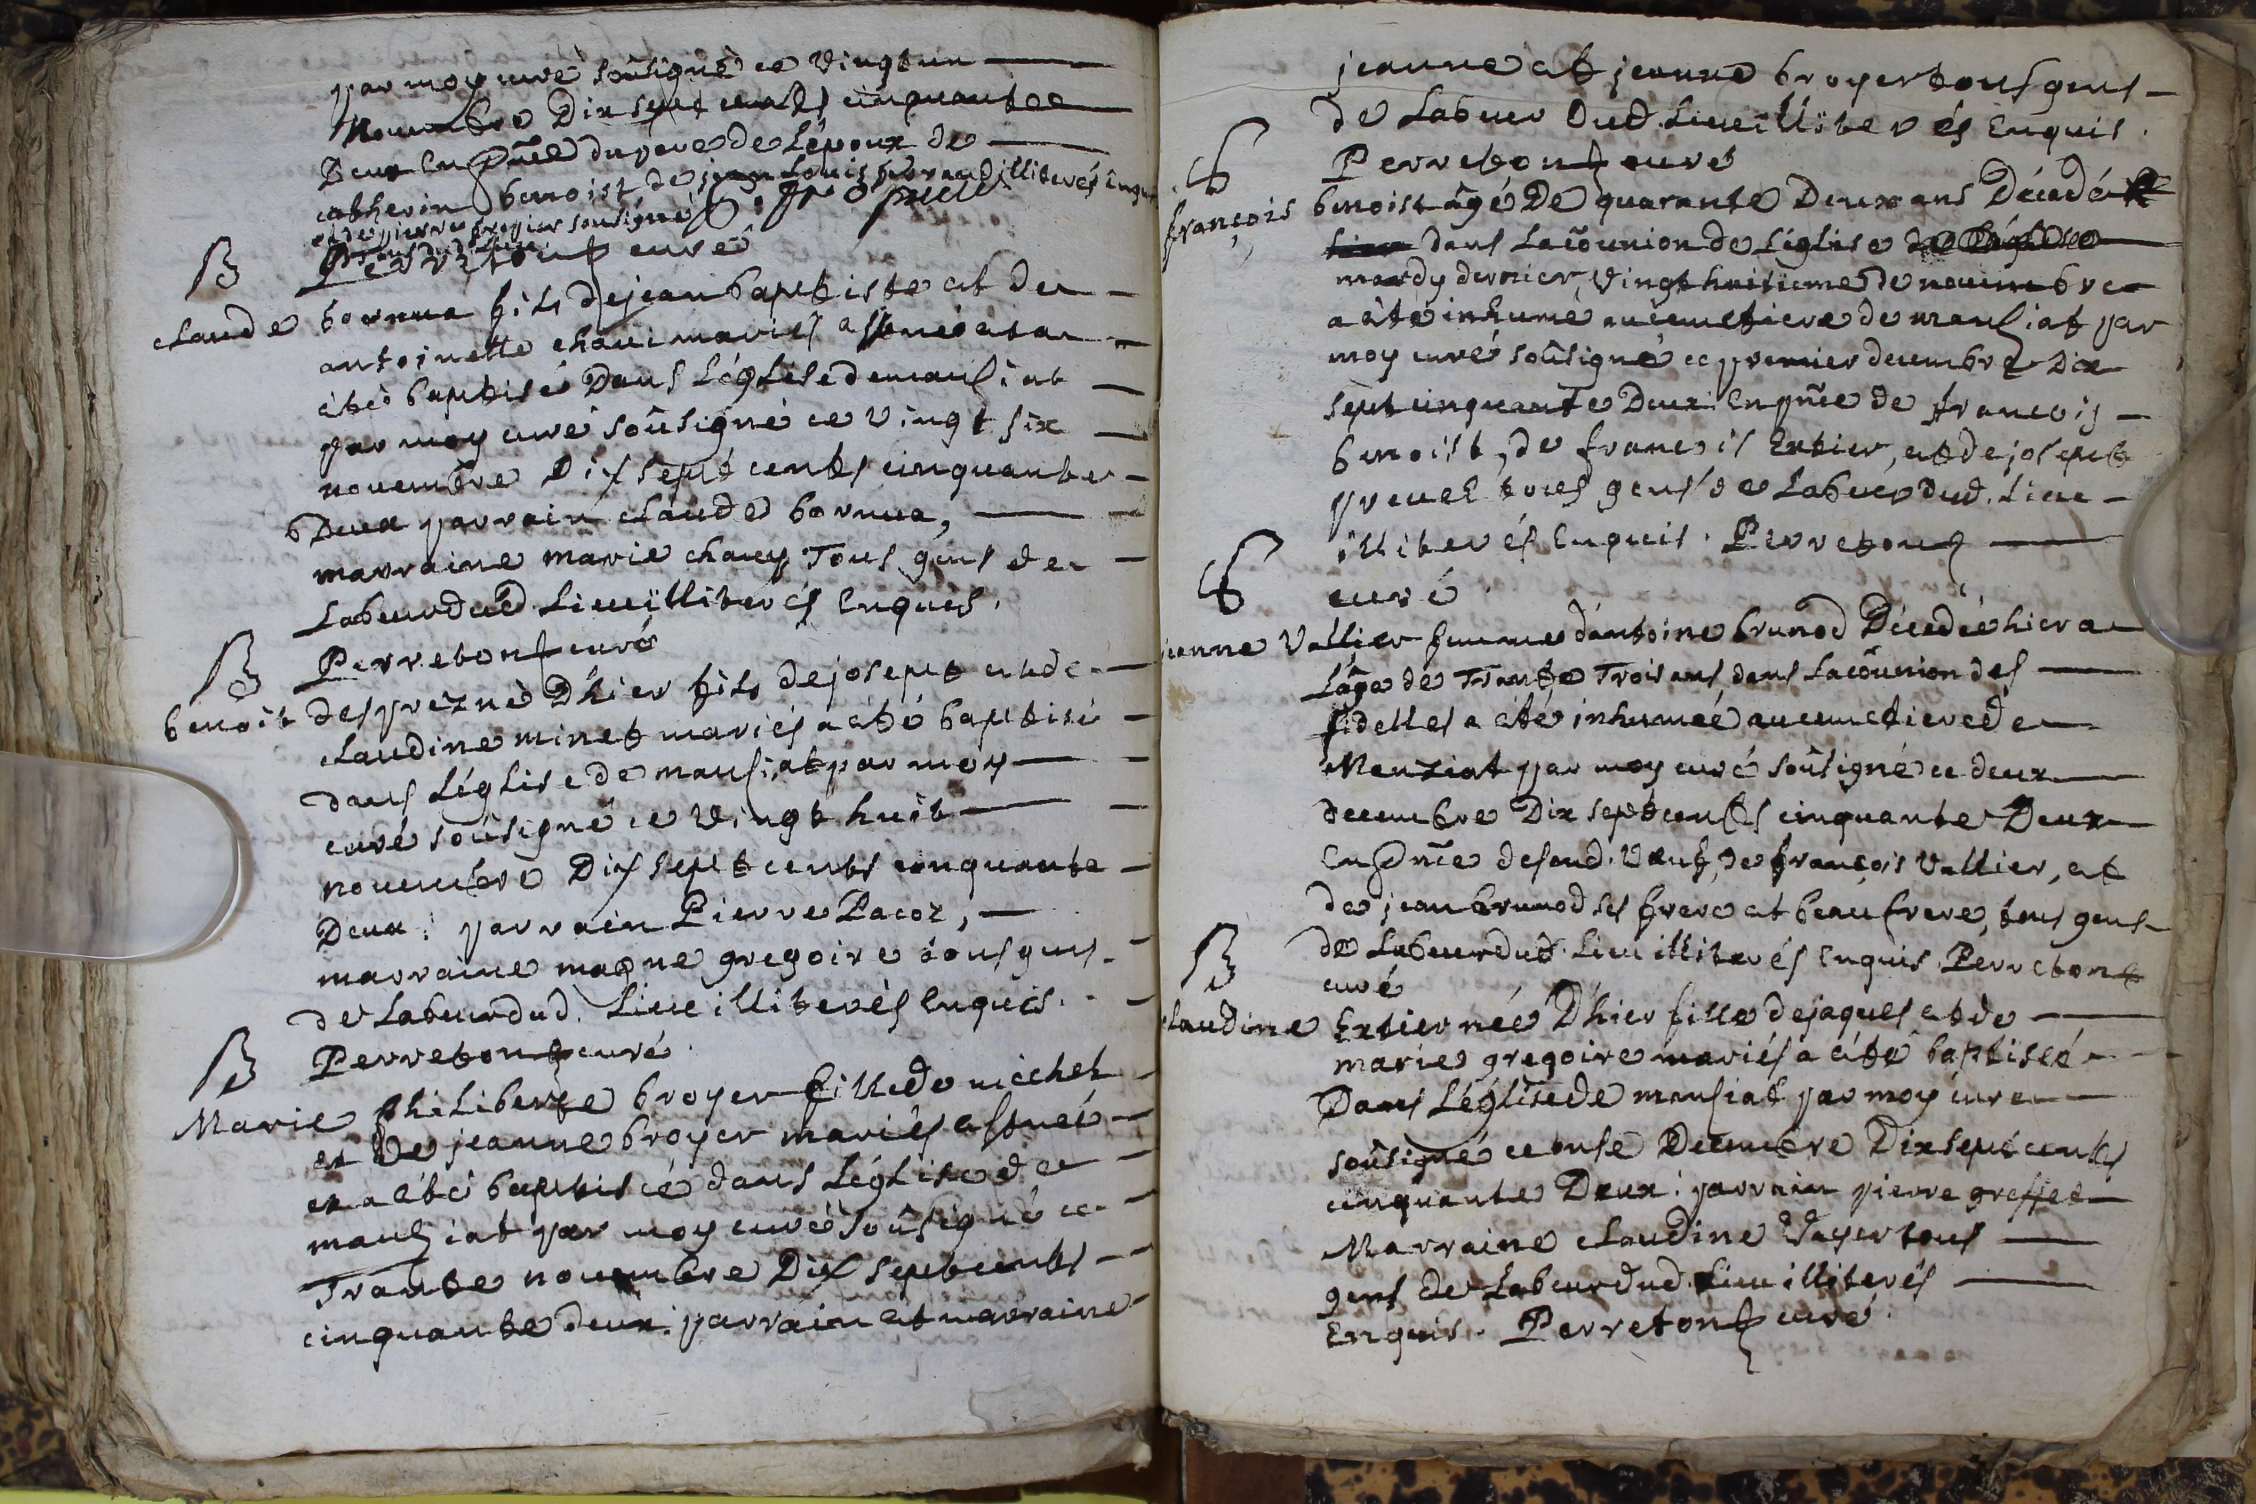 par moy curé soûsigné ce vingt un
Novembre Dix sept cents cinquante
Deux En pñce du pere de L'époux de
catherin benoist de Louis illiterés enquis
et de pierre broyer soûsigné
Perreton curé
B
claude bornua fils de jean baptiste et de
antoinette chavi mariés est né et a
êté baptisé Dans L'église de mansiat
par moy curé soûsigné ce vingt six
novembre Dix sept cents cinquante
Deux parrain claude bornua,
marraine marie chavy Tous gens de
Labeur dud. Lieu illiterés Enquis.
Perreton curé
B
benoit desprez né D'hier fils de josept et de
claudine minet mariés a êté baptisé
dans L'église de mansiat par moy
curé soûsigné ce vingt huit
novembre Dix sept cents cinquante
Deux: parrain Pierre Pacoz,
marraine gregoire tous gens
de Labeur dud. Lieu illiterés Enquis.
Perreton curé.
B
Marie philiberte broyer fille de michel
et de jeanne broyer mariés est neé
et a êté baptiseé dans L'église de
mansiat par moy curé soûsigné ce
Trante novembre Dix sept cents
cinquante deux: parrain et marraine
jeanne et jeanne broyer tous gens
de Labeur Dud. Lieu illiterés Enquis.
Perreton curé
françois benoist âgé De quarante Deux ans Décedé
dans La coûnion de L'église
mardy dernier, vingt huitieme de novembre
a êté inhumé au cemetiere de mansiat par
moy curé soûsigné ce premier decembre Dix
sept cinquante Deux: En pñce de francois
benoist, de francois Extier, et de josept
prevel tous gens de Labeur dud. Lieu
illiterés Enquis. Perreton
curé.
jeanne Vallier femme d'antoine brunod Décedeé hier a
L'âge de Trante Trois ans dans La coûnion des
fidelles a êté inhumeé au cemetiere de
Menziat par moy curé soûsigné ce deux
decembre Dix sept cents cinquante Deux
En pñce de soud. veuf, de françois Vallier, et
de jean brunod ses frere et beau frere, tous gens
de Labeur dud. Lieu illiterés Enquis Perreton
curé
B
claudine Extier née D'hier fille de jaques et de
marie gregoire mariés a êté baptiseé
Dans L'église de mansiat par moy curé
soûsigné ce onse Decembre Dix sept cents
cinquante Deux: parrain pierre greffet
Marraine claudine Vayer tous
gens de Labeur dud. Lieu illiterés
Enquis. Perreton curé.